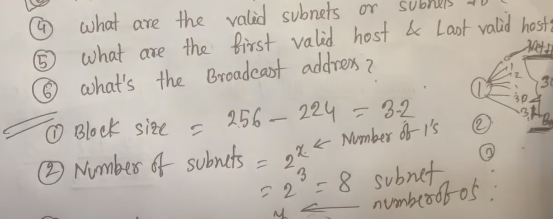 ④ what are the valid subnets or subnets
⑤ what are the first valid host & Last valid host?
⑥ what's the Broadcast address?
① Block size = 256 - 224 = 32
② Number of subnets = 2^x ← Number of 1's
= 2^3 = 8 subnet
← number of 0s :
①
②